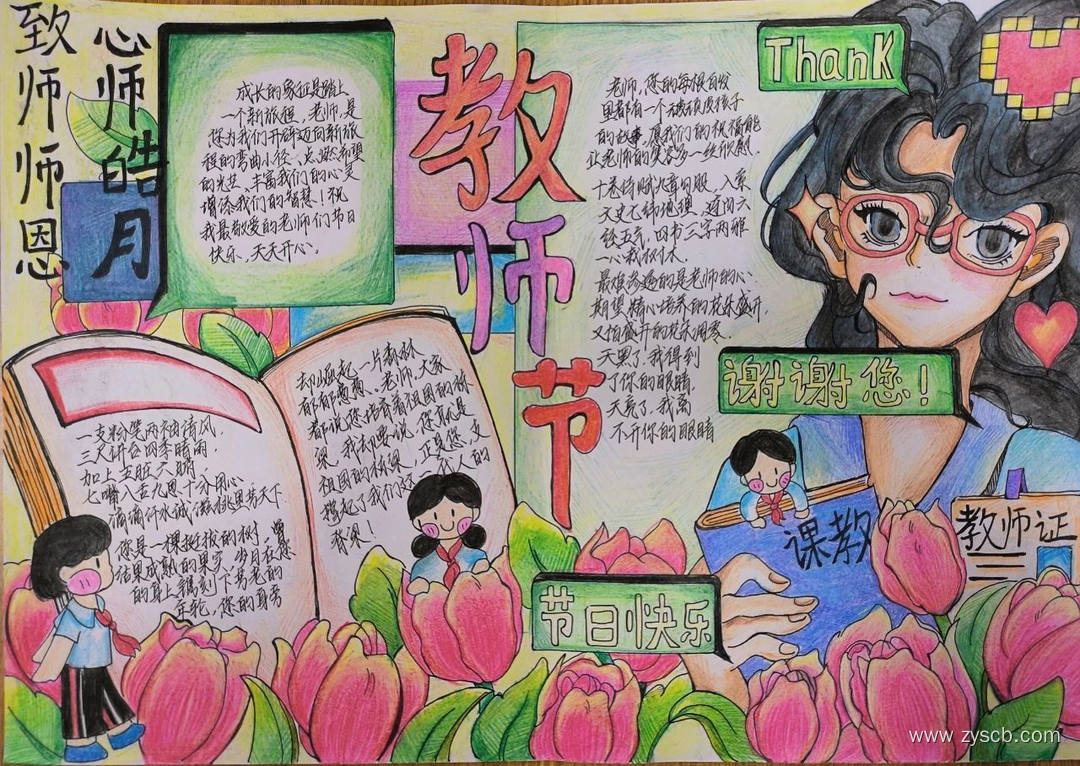 致师师恩
心师皓月
成长的象征是踏上
一个新旅程，老师，是
您为我们开辟迈向新旅
程的弯曲小径、点燃希望
的光芒、丰富我们的心灵
增添我们的智慧！祝
我最敬爱的老师们节日
快乐，天天开心。
教师节
老师，您的每根白发
里都有一个被顽皮孩子
的故事，愿我们的祝福能
让老师的笑容多一丝欣慰。
天文
六
经五气，四书三字两雅
一心
最难
的是老师的心
期望，精心培养的花朵盛开，
又怕盛开的花朵凋零。
天黑了，我得到
了你的眼睛
天亮了，我离
不开你的眼睛
Thank
谢谢您！
一支粉笔两袖清风，
三尺讲台四季晴雨，
加上五脏六腑，
七嘴八舌九思十分用心
滴滴汗水诚滋桃李芳天下
您是一棵挺拔的树，曾
结果成熟的果实，岁月在您
的身上镌刻下苍老的
年轮，您的身旁
却崛起一片森林
郁郁葱葱。老师，大家
都说您培育着祖国的栋
梁，我却要说，您就是
祖国的栋梁。正是您，支
撑起了我们这一代人的
脊梁！
课教
教师证
节日快乐
www.zyscb.com